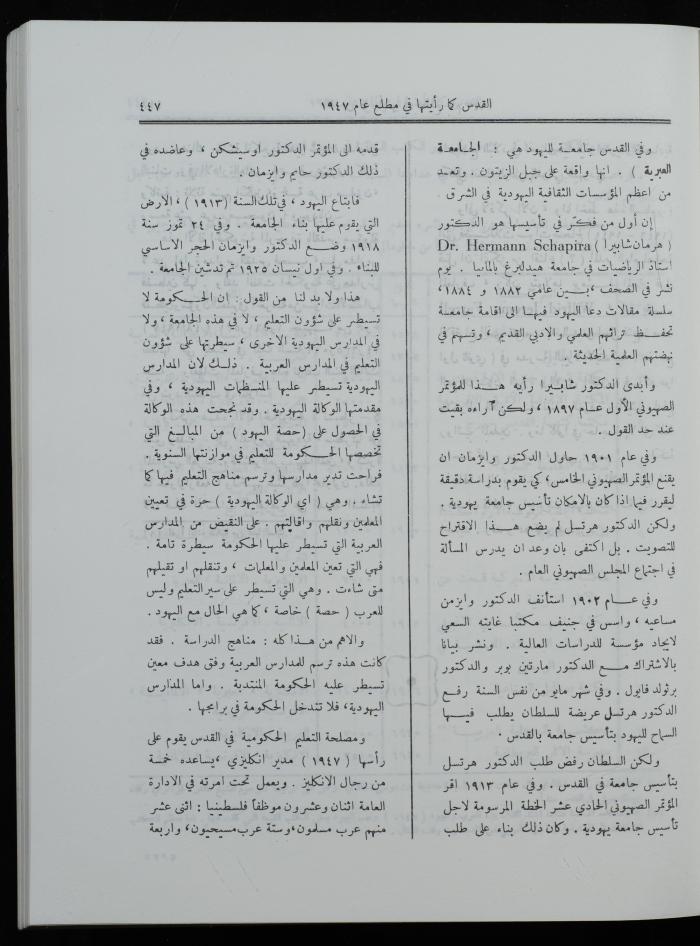 القدس كما رأيتها في مطلع عام ١٩٤٧
٤٤٧
وفي القدس جامعة لليهود هي : الجامعة
العبرية ) . انها واقعة على جبل الزيتون . وتعد
من اعظم المؤسسات الثقافية اليهودية في الشرق .
إن أول من فكّر في تأسيسها هو الدكتور
( هرمان شابيرا ) Dr. Hermann Schapira
استاذ الرياضيات في جامعة هيدلبرغ بالمانيا . يوم
نشر في الصحف ، بين عامي ١٨٨٢ و ١٨٨٤ ،
سلسلة مقالات دعا اليهود فيها الى اقامة جامعة
تحفظ تراثهم العلمي والادبي القديم ، وتسهم في
نهضتهم العلمية الحديثة .
وأبدى الدكتور شابيرا رأيه هذا للمؤتمر
الصهيوني الأول عام ١٨٩٧ ، ولكن آراءه بقيت
عند حد القول .
وفي عام ١٩٠١ حاول الدكتور وايزمان ان
يقنع المؤتمر الصهيوني الخامس، كي يقوم بدراسة دقيقة
ليقرر فيما اذا كان بالامكان تأسيس جامعة يهودية .
ولكن الدكتور هرتسل لم يضع هذا الاقتراح
للتصويت . بل اكتفى بان وعد ان يدرس المسألة
في اجتماع المجلس الصهيوني العام .
وفي عام ١٩٠٢ استأنف الدكتور وايزمن
مساعيه ، واسس في جنيف مكتبا غايته السعي
لايجاد مؤسسة للدراسات العالية . ونشر بيانا
بالاشتراك مع الدكتور مارتين بوبر والدكتور
برثولد فايول . وفي شهر مايو من نفس السنة رفع
الدكتور هرتسل عريضة للسلطان يطلب فيها
السماح لليهود بتأسيس جامعة بالقدس .
ولكن السلطان رفض طلب الدكتور هرتسل
بتأسيس جامعة في القدس . وفي عام ١٩١٣ اقر
المؤتمر الصهيوني الحادي عشر الخطة المرسومة لاجل
تأسيس جامعة يهودية . وكان ذلك بناء على طلب
قدمه الى المؤتمر الدكتور اوسيشكن ، وعاضده في
ذلك الدكتور حايم وايزمان .
فابتاع اليهود ، في تلك السنة (١٩١٣) ، الارض
التي يقوم عليها بناء الجامعة . وفي ٢٤ تموز سنة
١٩١٨ وضع الدكتور وايزمان الحجر الاساسي
للبناء . وفي اول نيسان ١٩٢٥ تم تدشين الجامعة .
هذا ولا بد لنا من القول : ان الحكومة لا
تسيطر على شؤون التعليم ، لا في هذه الجامعة ، ولا
في المدارس اليهودية الاخرى ، سيطرتها على شؤون
التعليم في المدارس العربية . ذلك لان المدارس
اليهودية تسيطر عليها المنظمات اليهودية ، وفي
مقدمتها الوكالة اليهودية . وقد نجحت هذه الوكالة
في الحصول على (حصة اليهود ) من المبالغ التي
تخصصها الحكومة للتعليم في موازنتها السنوية .
فراحت تدير مدارسها وترسم مناهج التعليم فيها كما
تشاء . وهي ( اي الوكالة اليهودية ) حرة في تعيين
المعلمين ونقلهم واقالتهم . على النقيض من المدارس
العربية التي تسيطر عليها الحكومة سيطرة تامة .
فهي التي تعين المعلمين والمعلمات ، وتنقلهم او تقيلهم
متى شاءت . وهي التي تسيطر على سير التعليم وليس
للعرب ( حصة ) خاصة ، كما هي الحال مع اليهود .
والاهم من هذا كله : مناهج الدراسة . فقد
كانت هذه ترسم للمدارس العربية وفق هدف معين
تسيطر عليه الحكومة المنتدبة . واما المدارس
اليهودية، فلا تتدخل الحكومة في برامجها .
ومصلحة التعليم الحكومية في القدس يقوم على
رأسها ( ١٩٤٧ ) مدير انكليزي ، يساعده خمسة
من رجال الانكليز . ويعمل تحت امرته في الادارة
العامة اثنان وعشرون موظفاً فلسطينيا : اثنى عشر
منهم عرب مسلمون، وستة عرب مسيحيون، واربعة